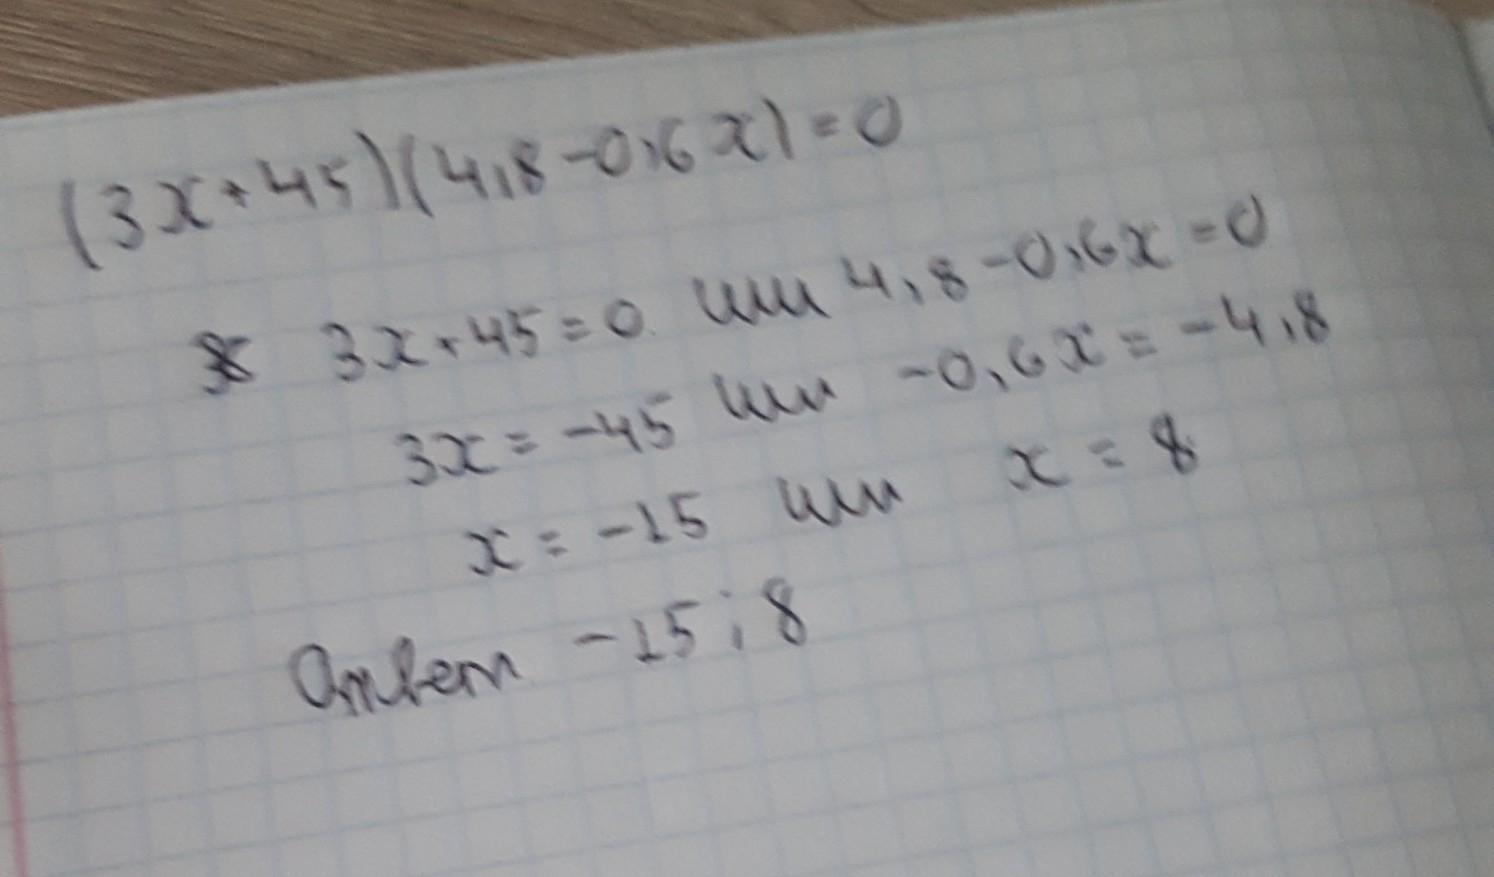 (3x+45)(4,8-0,6x)=0
3x+45=0 или 4,8-0,6x=0
3x=-45 или -0,6x=-4,8
x=-15 или x=8
Ответ -15;8